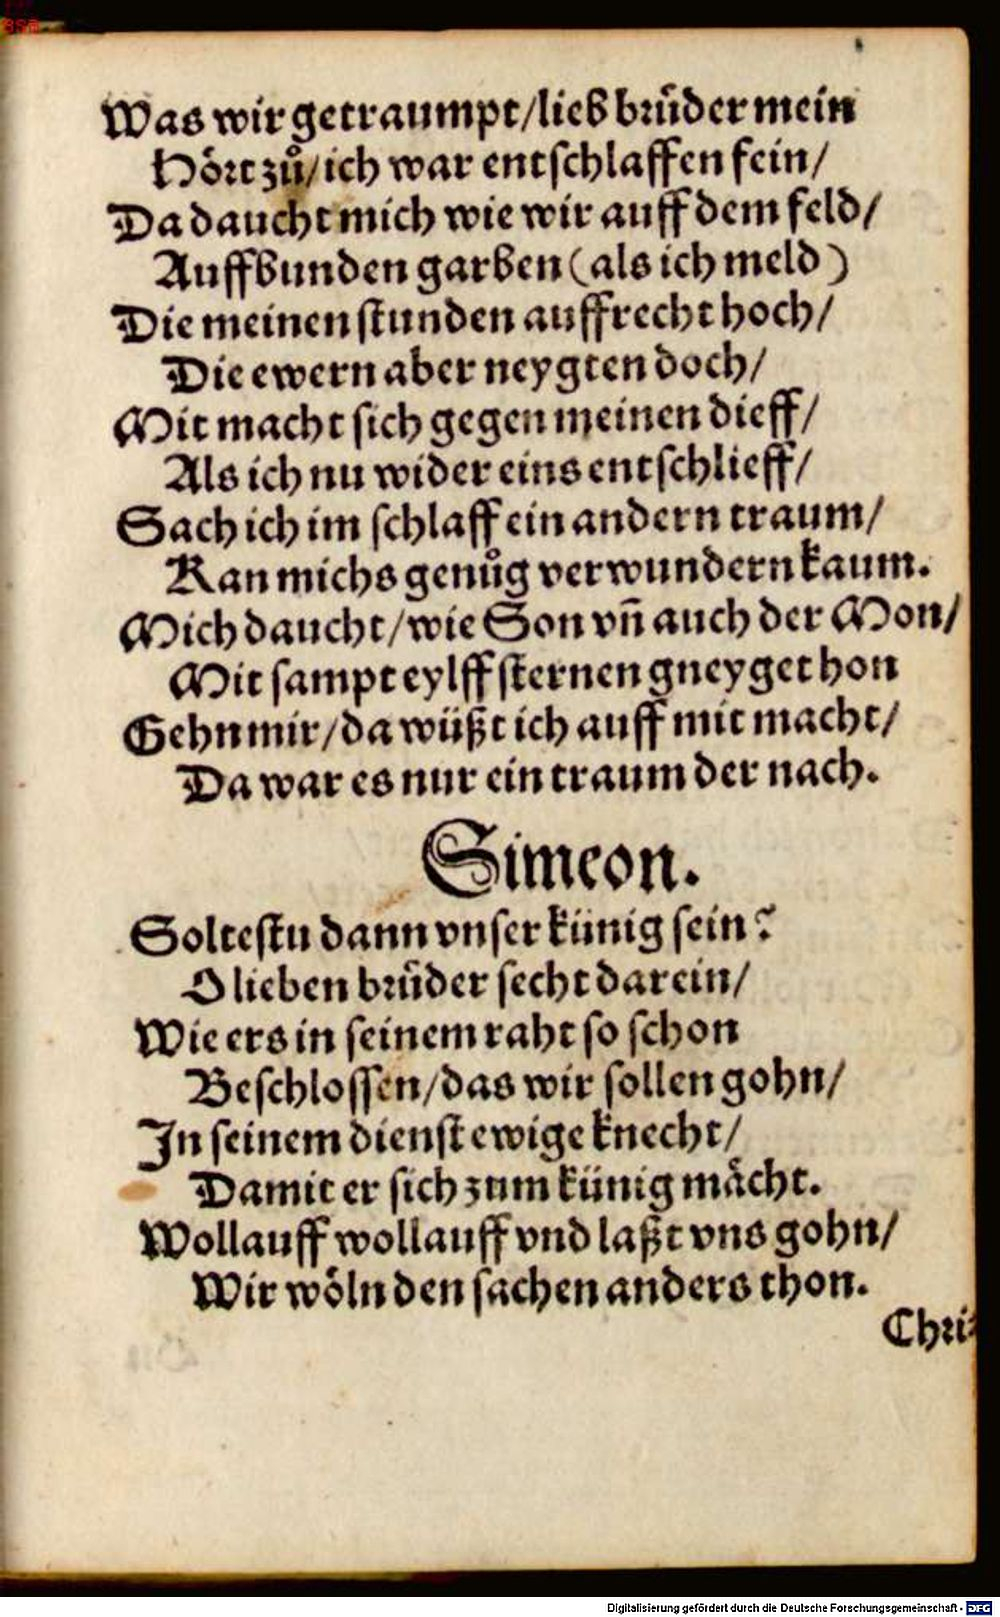 Was wir getraumpt/lieb brůder mein
Hoͤrt zů/ich war entschlaffen fein/
Da daucht mich wie wir auff dem feld/
Auffbunden garben (als ich meld)
Die meinen stunden auffrecht hoch/
Die ewern aber neygten doch/
Mit macht sich gegen meinen dieff/
Als ich nu wider eins entschlieff/
Sach ich im schlaff ein andern traum/
Kan michs genůg verwundern kaum.
Mich daucht/wie Son vñ auch der Mon/
Mit sampt eylff sternen gneyget hon
Gehn mir/da wüßt ich auff mit macht/
Da war es nur ein traum der nach.
Simeon.
Soltestu dann vnser künig sein?
O lieben brůder secht darein/
Wie ers in seinem raht so schon
Beschlossen/das wir sollen gohn/
In seinem dienst ewige knecht/
Damit er sich zum künig maͤcht.
Wollauff wollauff vnd laßt vns gohn/
Wir woͤln den sachen anders thon.
Chri-
Digitalisierung gefördert durch die Deutsche Forschungsgemeinschaft - DFG